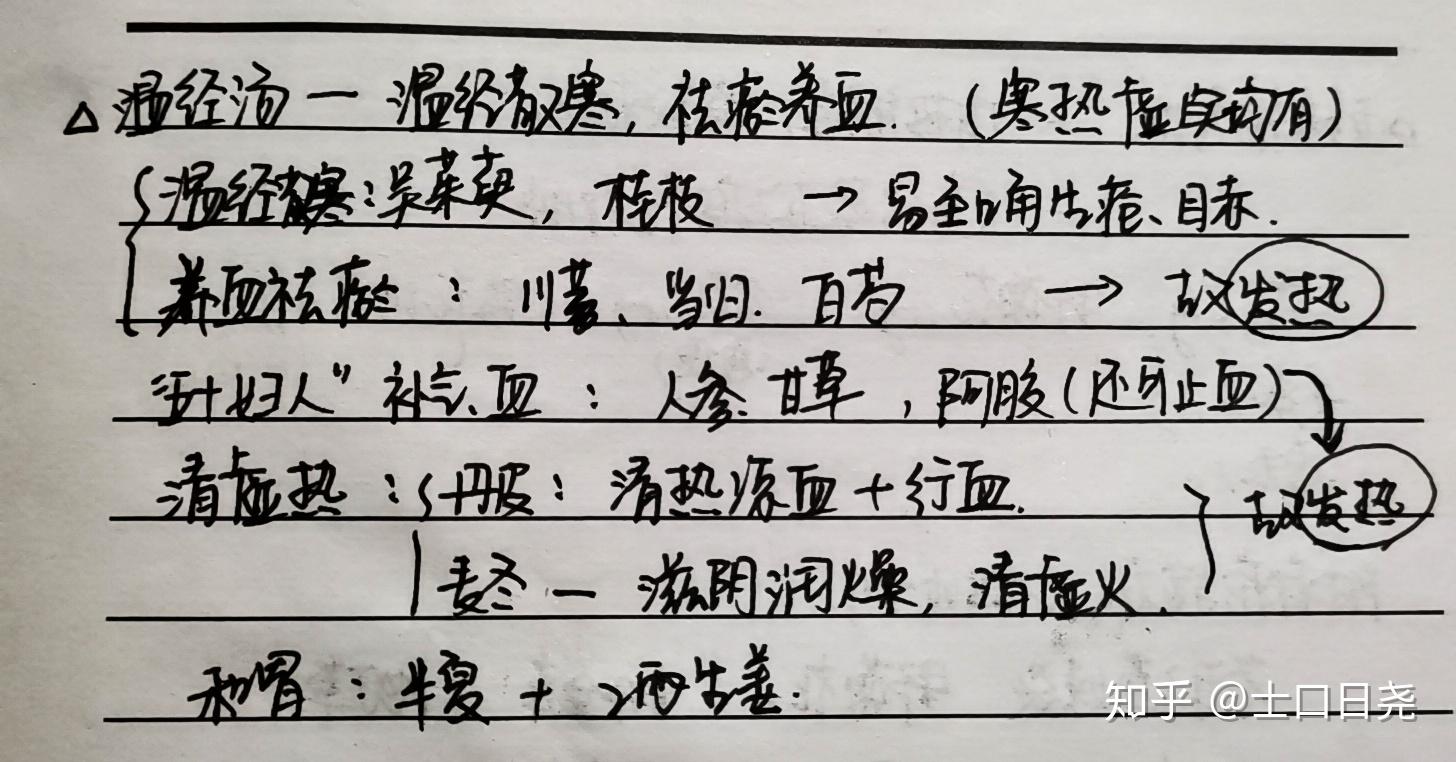 △ 温经汤 — 温经散寒, 祛瘀养血. (寒热虚实均有)
温经散寒: 吴茱萸, 桂枝 → 易至口角生疮、目赤.
养血祛瘀 : 川芎、当归. 白芍 → 故发热
"五十妇人" 补气、血 : 人参. 甘草 , 阿胶 (还可止血)
清虚热 : 丹皮 : 清热凉血 + 行血. 故发热
麦冬 — 滋阴润燥, 清虚火.
和胃 : 半夏 + 2两生姜.
知乎 @士口日尧